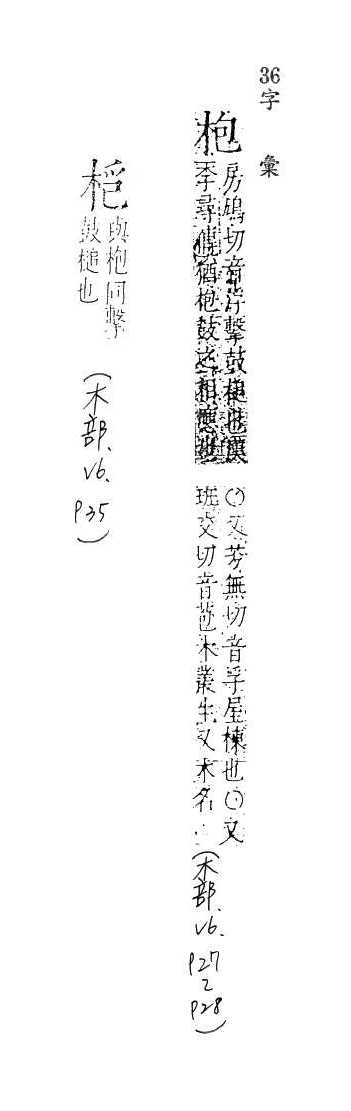 36字 彙
枹
房鳩切音浮擊鼓槌也漢
李尋傳猶枹鼓之相應也
〇又芳無切音孚屋棟也〇又
班交切音苞木叢生又木名
(木部、v6、P27~P28)
桴
與枹同擊
鼓槌也
(木部、v6、P35)